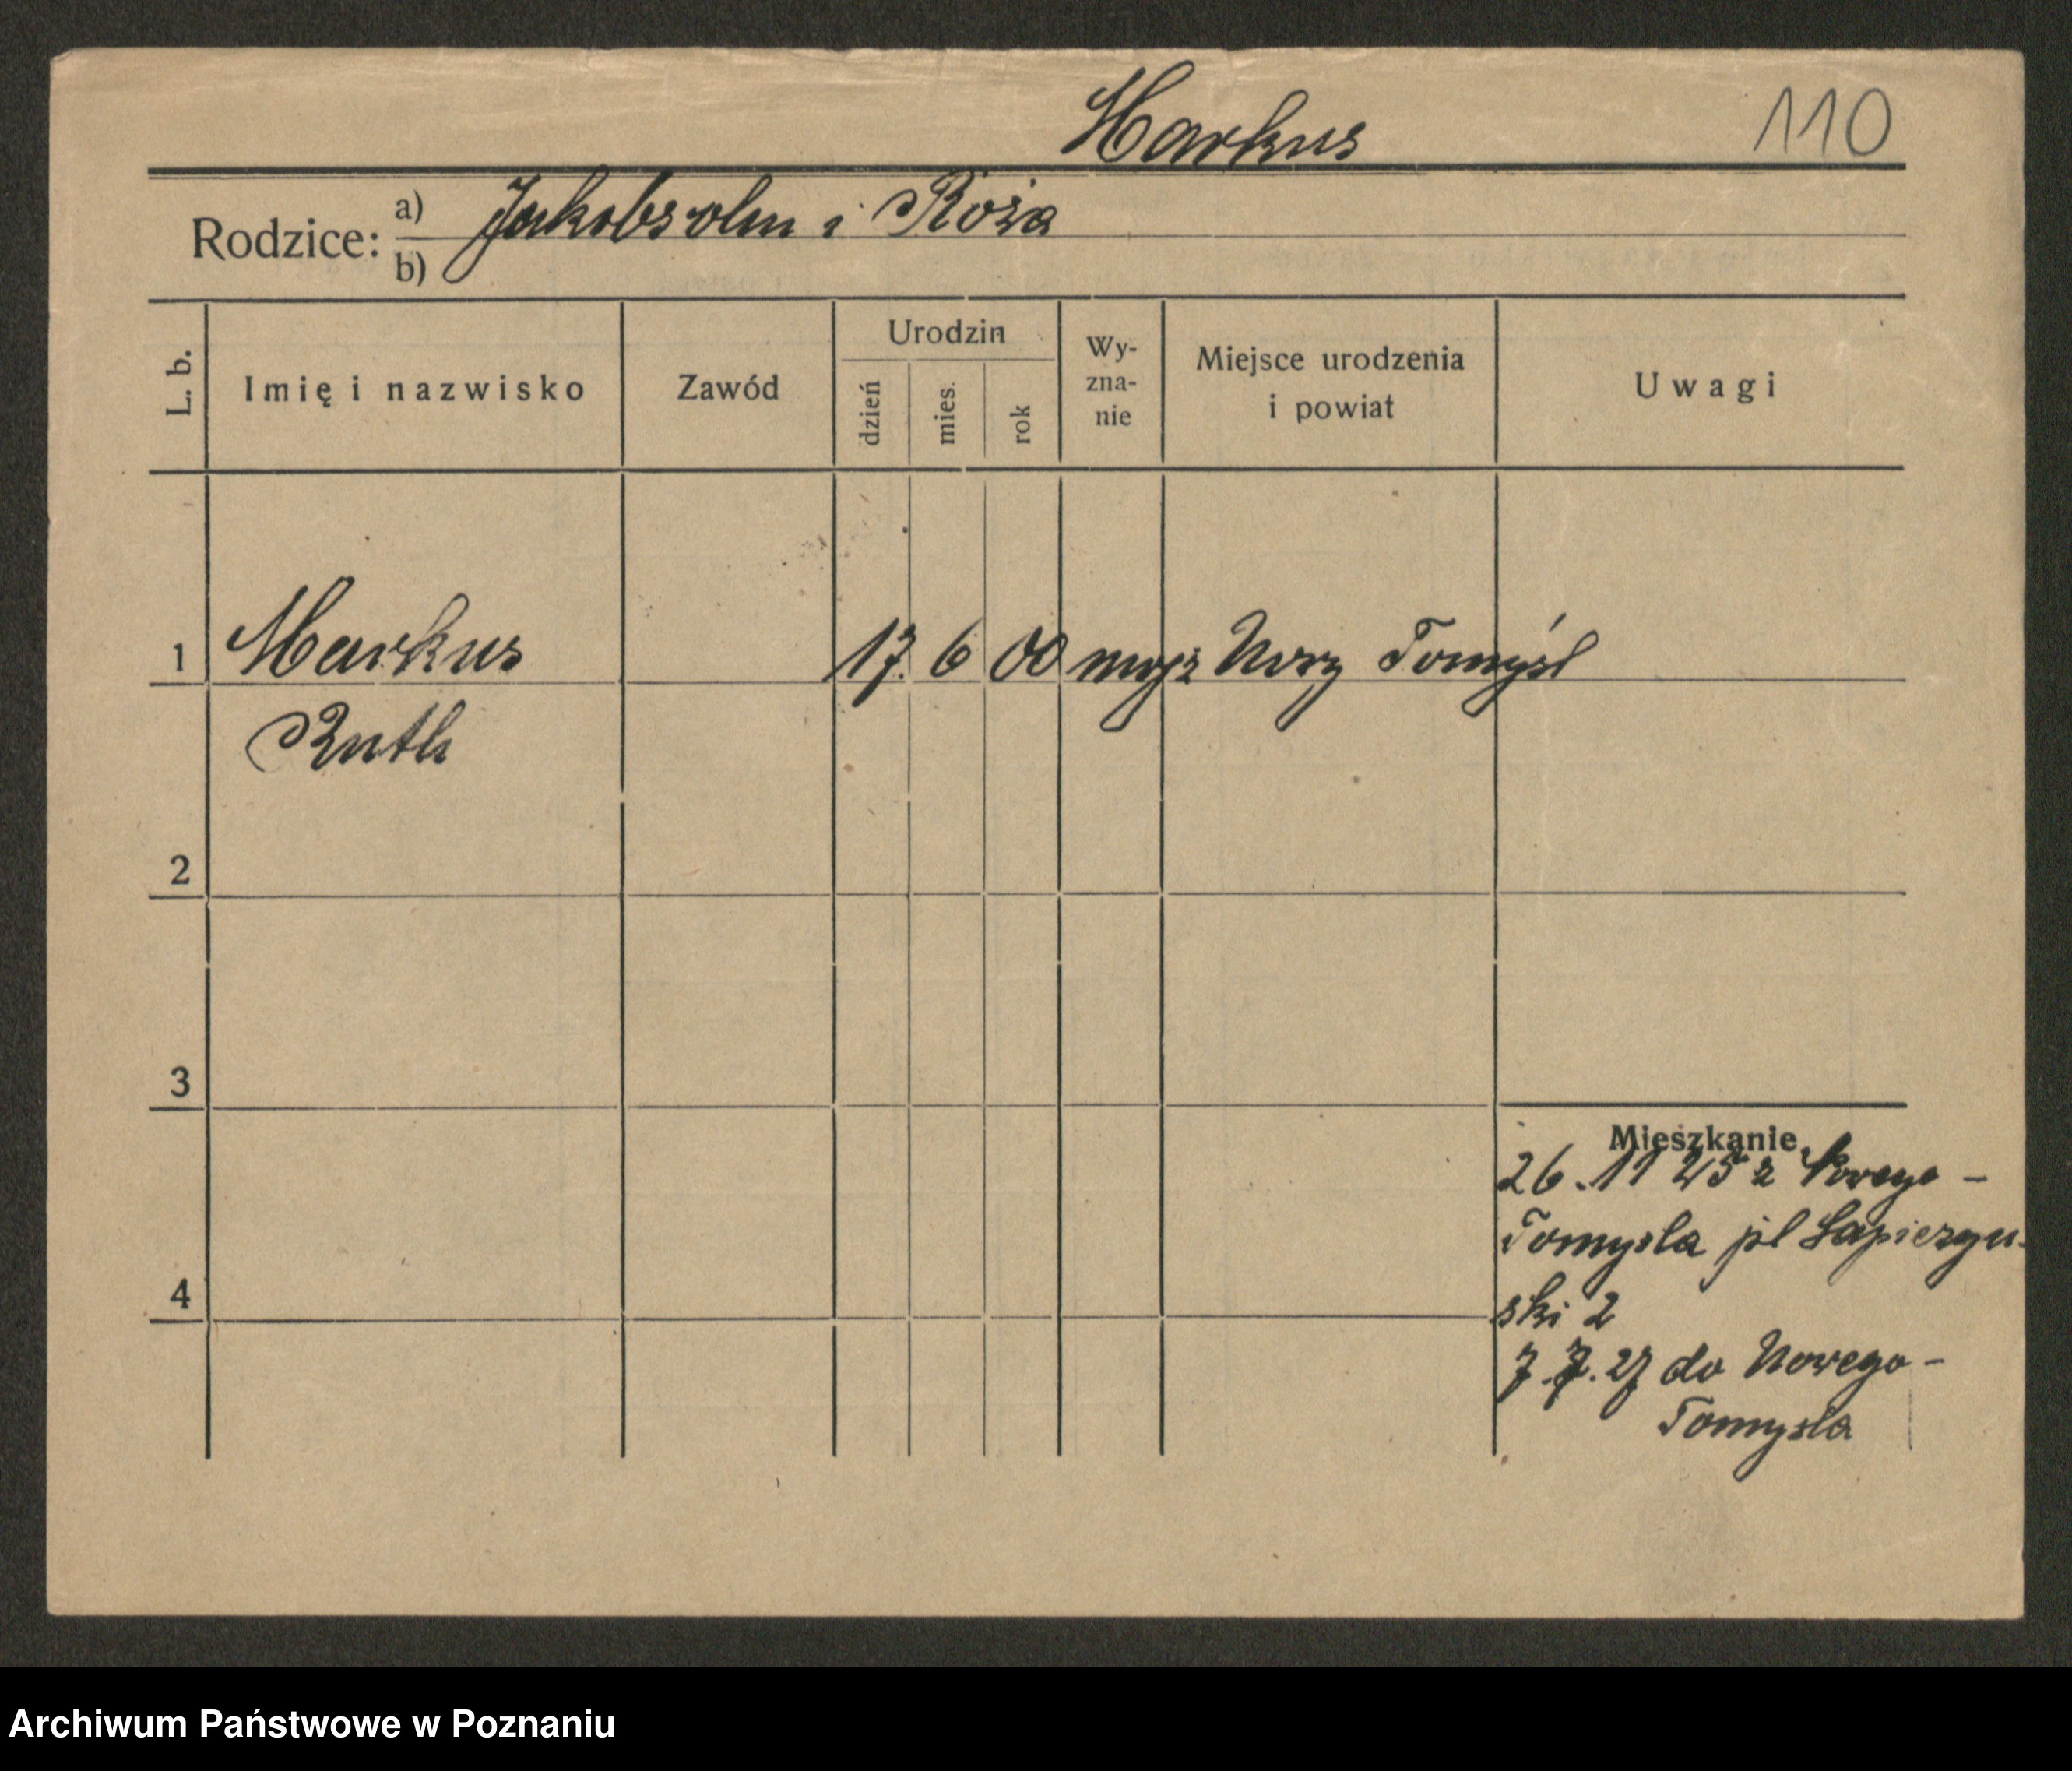 Markus 110
Rodzice: a) Jakobsohn i Róża
b)
L. b. Imię i nazwisko Zawód Urodzin dzień mies. rok Wy-zna-nie Miejsce urodzenia i powiat Uwagi
1 Markus 17. 6 00 mojż Nowy Tomyśl
Ruth
2
3
Mieszkanie
26.11 25 z Nowego-
Tomysla pl Sapierzyn-
4
ski 2
7.7.27 do Nowego-
Tomysla
Archiwum Państwowe w Poznaniu